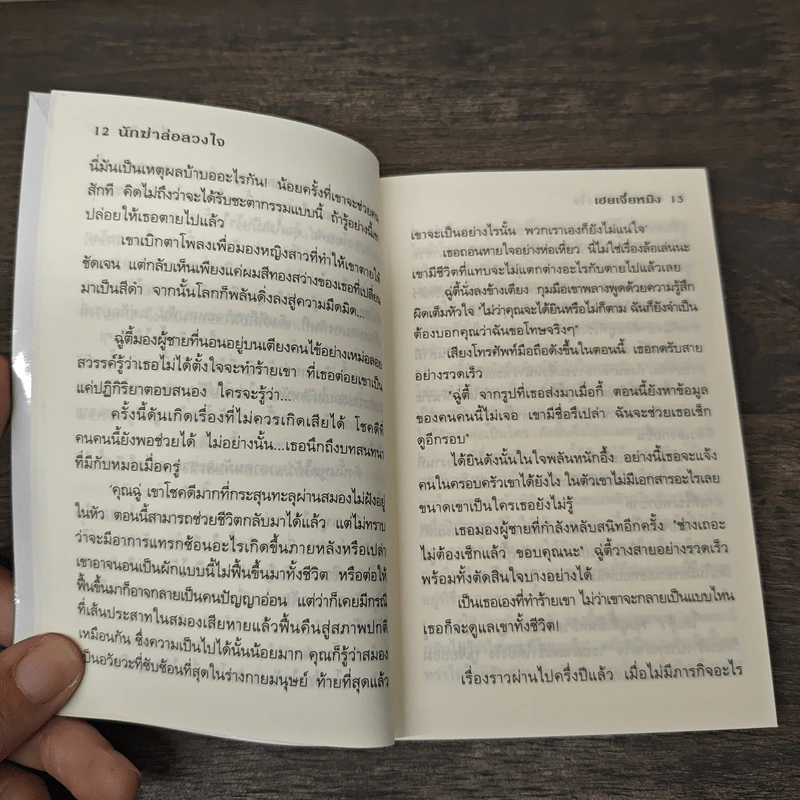 12 นักฆ่าล่อลวงใจ
นี่มันเป็นเหตุผลบ้าบออะไรกัน! น้อยครั้งที่เขาจะช่วย
สักที คิดไม่ถึงว่าจะได้รับชะตากรรมแบบนี้ ถ้ารู้อย่างนี้
ปล่อยให้เธอตายไปแล้ว
เขาเบิกตาโพลงเพื่อมองหญิงสาวที่ทำให้เขาตายให้
ชัดเจน แต่กลับเห็นเพียงแค่ผมสีทองสว่างของเธอที่เปลี่ยน
มาเป็นสีดำ จากนั้นโลกก็พลันดิ่งลงสู่ความมืดมิด...
ฉู่ตี้มองผู้ชายที่นอนอยู่บนเตียงคนไข้อย่างเหม่อลอย
สวรรค์รู้ว่าเธอไม่ได้ตั้งใจจะทำร้ายเขา ที่เธอต่อยเขาเป็น
แค่ปฏิกิริยาตอบสนอง ใครจะรู้ว่า...
ครั้งนี้ดันเกิดเรื่องที่ไม่ควรเกิดเสียได้ โชคดีที่
คนคนนี้ยังพอช่วยได้ ไม่อย่างนั้น...เธอนึกถึงบทสนทนา
ที่มีกับหมอเมื่อครู่
'คุณฉู่ เขาโชคดีมากที่กระสุนทะลุผ่านสมองไม่ฝังอยู่
ในหัว ตอนนี้สามารถช่วยชีวิตกลับมาได้แล้ว แต่ไม่ทราบ
ว่าจะมีอาการแทรกซ้อนอะไรเกิดขึ้นภายหลังหรือเปล่า
เขาอาจนอนเป็นผักแบบนี้ไม่ฟื้นขึ้นมาทั้งชีวิต หรือต่อให้
ฟื้นขึ้นมาก็อาจกลายเป็นคนปัญญาอ่อน แต่ว่าก็เคยมีกรณี
ที่เส้นประสาทในสมองเสียหายแล้วฟื้นคืนสู่สภาพปกติ
เหมือนกัน ซึ่งความเป็นไปได้นั้นน้อยมาก คุณก็รู้ว่าสมอง
เป็นอวัยวะที่ซับซ้อนที่สุดในร่างกายมนุษย์ ท้ายที่สุดแล้ว
เฮยเจี๋ยหมิง 13
เขาจะเป็นอย่างไรนั้น พวกเราเองก็ยังไม่แน่ใจ'
เธอถอนหายใจอย่างห่อเหี่ยว นี่ไม่ใช่เรื่องล้อเล่นนะ
เขามีชีวิตที่แทบจะไม่แตกต่างอะไรกับตายไปแล้วเลย
ฉู่ตี้นั่งลงข้างเตียง กุมมือเขาพลางพูดด้วยความรู้สึก
ผิดเต็มหัวใจ "ไม่ว่าคุณจะได้ยินหรือไม่ก็ตาม ฉันก็ยังจำเป็น
ต้องบอกคุณว่าฉันขอโทษจริงๆ"
เสียงโทรศัพท์มือถือดังขึ้นในตอนนี้ เธอกดรับสาย
อย่างรวดเร็ว
"ฉู่ตี้ จากรูปที่เธอส่งมาเมื่อกี้ ตอนนี้ยังหาข้อมูล
ของคนคนนี้ไม่เจอ เขามีชื่อรึเปล่า ฉันจะช่วยเธอเช็ก
ดูอีกรอบ"
ได้ยินดังนั้นในใจพลันหนักอึ้ง อย่างนี้เธอจะแจ้ง
คนในครอบครัวเขาได้ยังไง ในตัวเขาไม่มีเอกสารอะไรเลย
ขนาดเขาเป็นใครเธอยังไม่รู้
เธอมองผู้ชายที่กำลังหลับสนิทอีกครั้ง "ช่างเถอะ
ไม่ต้องเช็กแล้ว ขอบคุณนะ" ฉู่ตี้วางสายอย่างรวดเร็ว
พร้อมทั้งตัดสินใจบางอย่างได้
เป็นเธอเองที่ทำร้ายเขา ไม่ว่าเขาจะกลายเป็นแบบไหน
เธอก็จะดูแลเขาทั้งชีวิต!
เรื่องราวผ่านไปครึ่งปีแล้ว เมื่อไม่มีภารกิจอะไร